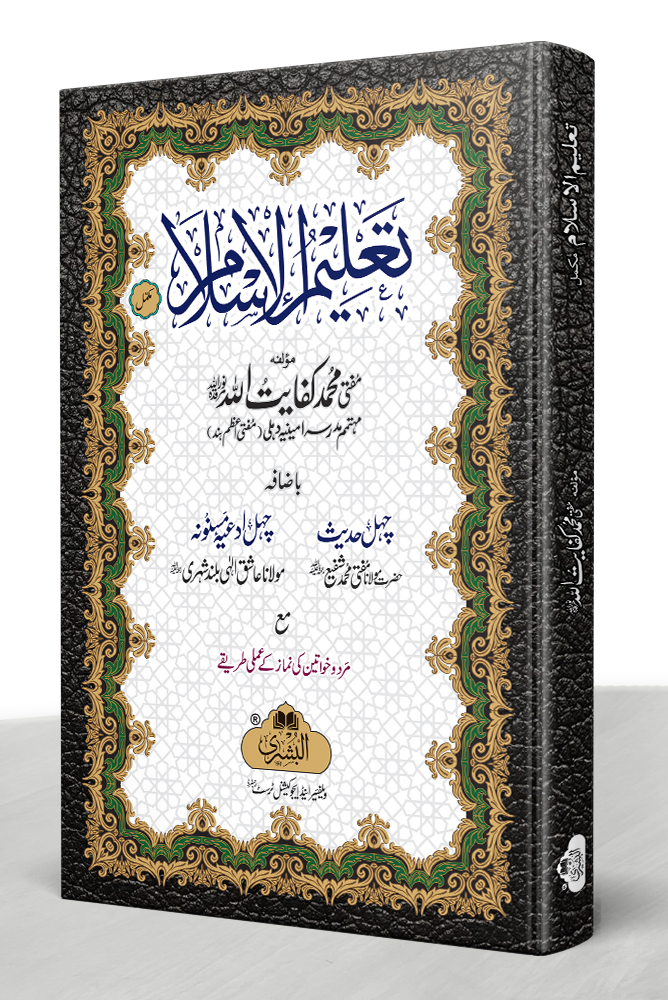 تعلیم الاسلام
مکمل
مؤلفہ
مفتی محمد کفایت اللہ نور اللہ مرقدہ
مہتمم مدرسہ امینیہ دہلی (مفتی اعظم ہند)
باضافہ
چہل حدیث
حضرت مولانا مفتی محمد شفیع
چہل ادعیہ مسنونہ
مولانا عاشق الٰہی بلند شہری
مع
مرد و خواتین کی نماز کے عملی طریقے
البشریٰ ®
ویلفیئر اینڈ ایجوکیشنل ٹرسٹ
تعلیم الاسلام مکمل
مؤلفہ مفتی محمد کفایت اللہ
البشریٰ ®